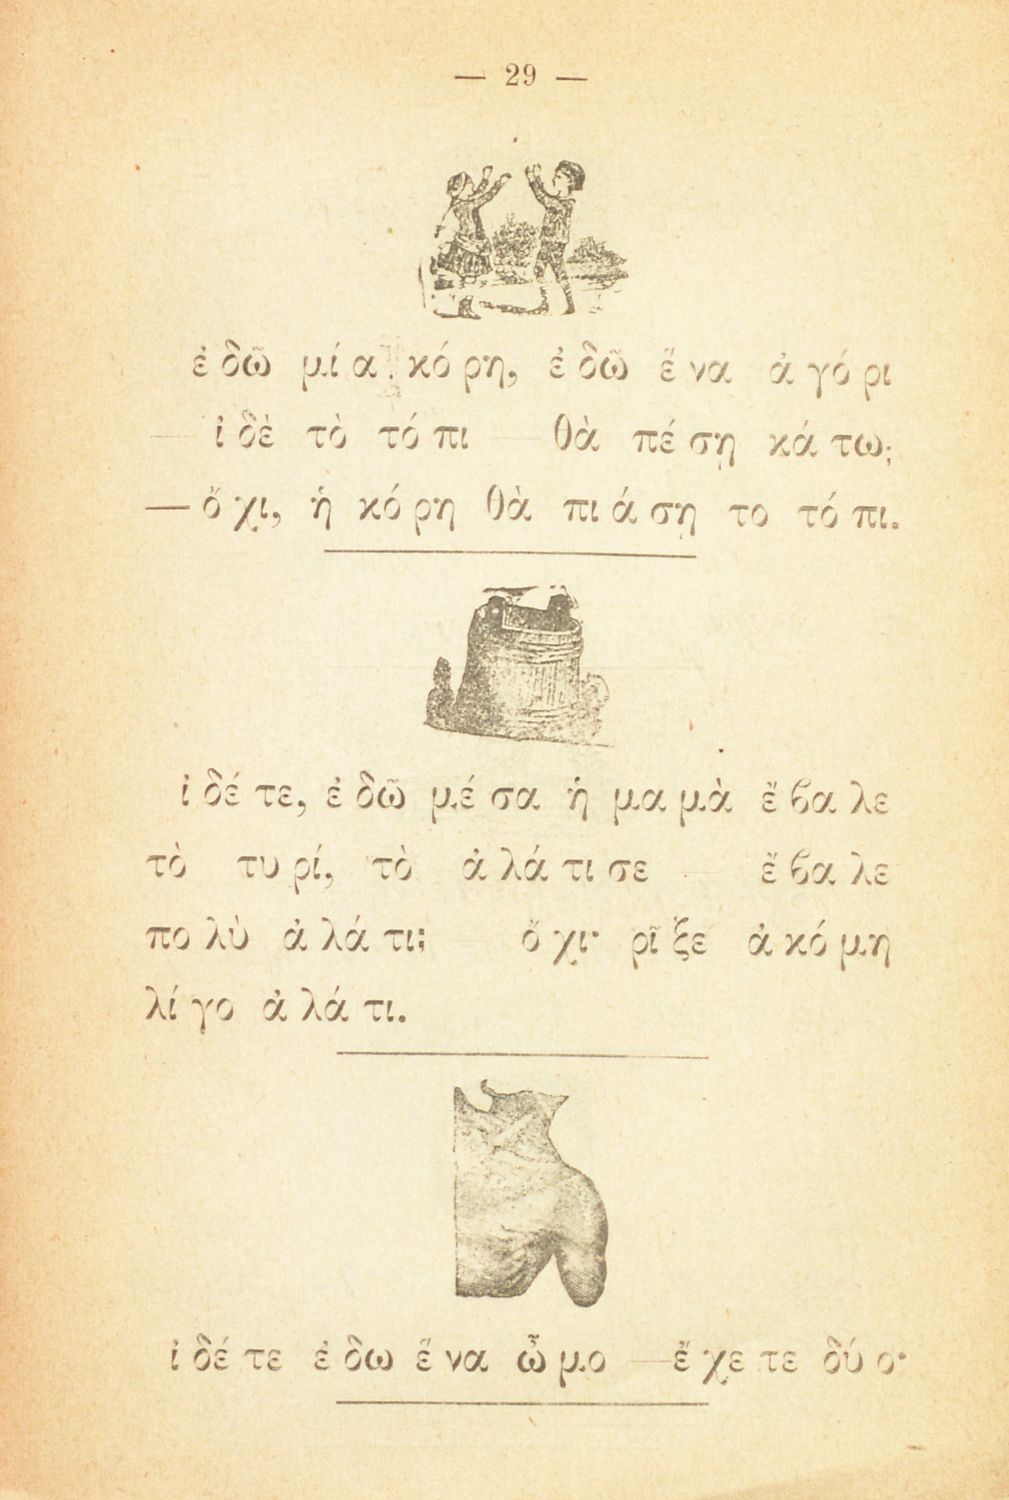 — 29 —
ἐ δῶ μί α κό ρη, ἐ δῶ ἕ να ἀ γό ρι
— ἰ δὲ τὸ τό πι — θὰ πέ σῃ κά τω;
— ὄ χι, ἡ κό ρη θὰ πι ά σῃ το τό πι.
ἰ δέ τε, ἐ δῶ μέ σα ἡ μα μὰ ἔ ϐα λε
τὸ τυ ρί, τὸ ἀ λά τι σε — ἔ ϐα λε
πο λὺ ἀ λά τι; — ὄ χι· ρῖ ξε ἀ κό μη
λί γο ἀ λά τι.
ἰ δέ τε ἐ δω ἕ να ὦ μο — ἔ χε τε δύ ο·